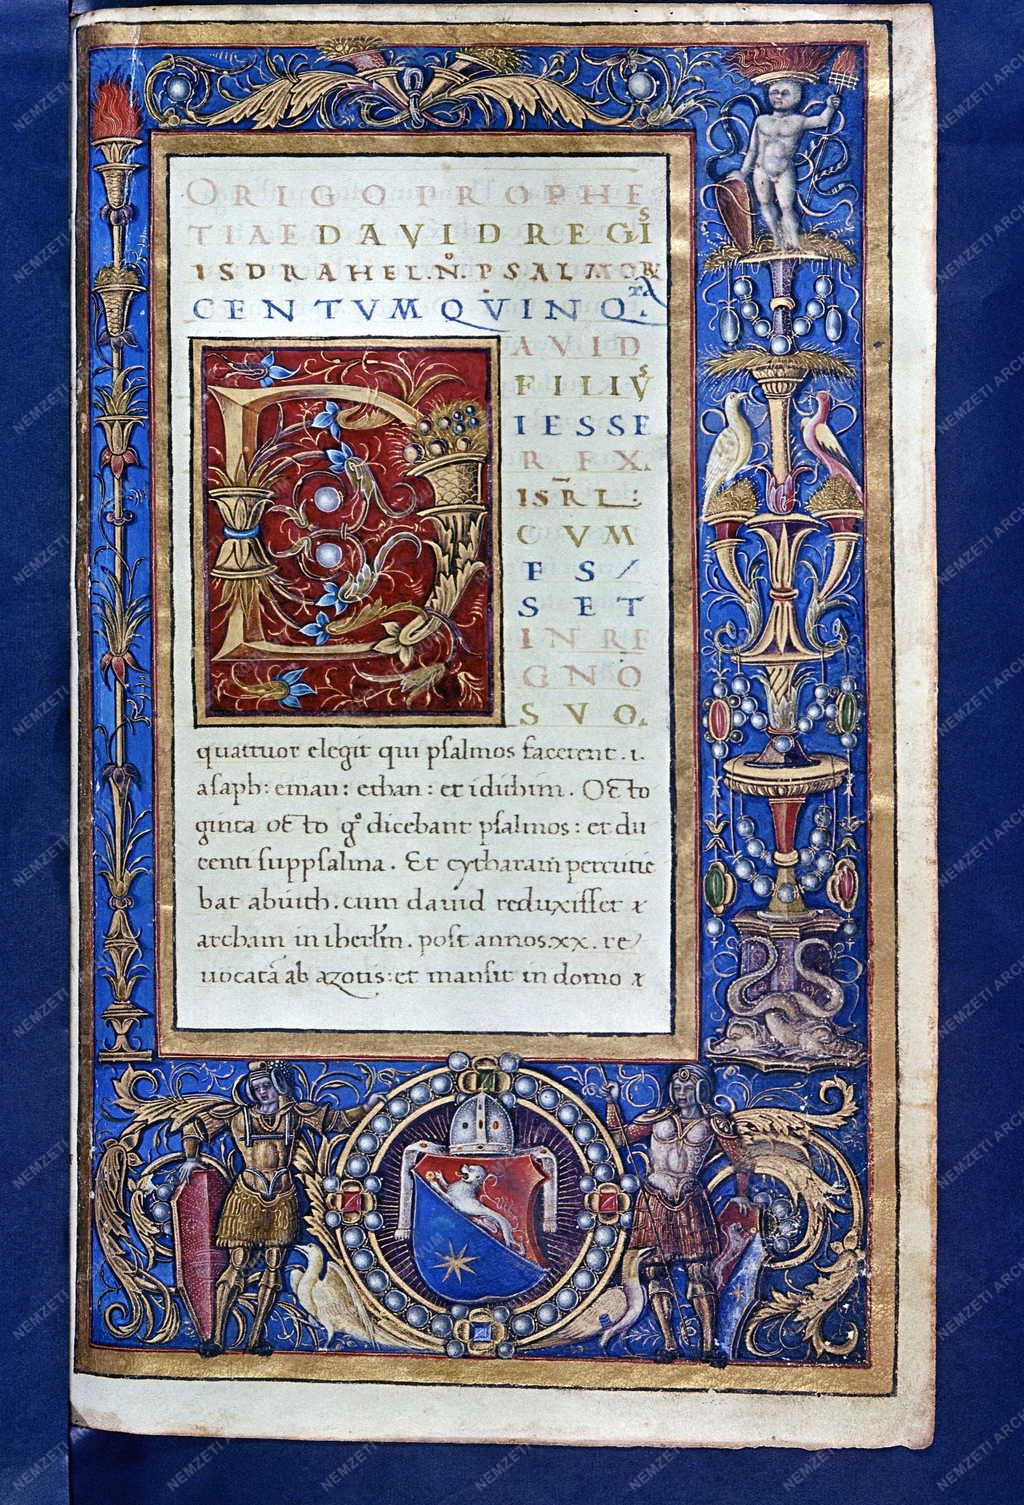 ORIGO PROPHE
TIAE DAVID REGIS
ISDRAHEL. Nº. PSALMOR
CENTVM QVINQ.
AVID
FILIVS
IESSE
REX.
ISRL:
CVM
ES/
SET
IN RE
GNO
SVO.
quattuor elegit qui psalmos facerent. i.
asaph: eman: ethan: et iduhim. Octo
ginta octo qº dicebant psalmos: et du
centi suppsalma. Et cytharam percutie
bat abuith. cum dauid reduxisset
archam in iherlm. post annos .xx. re
uocatā ab azotis: et mansit in domo